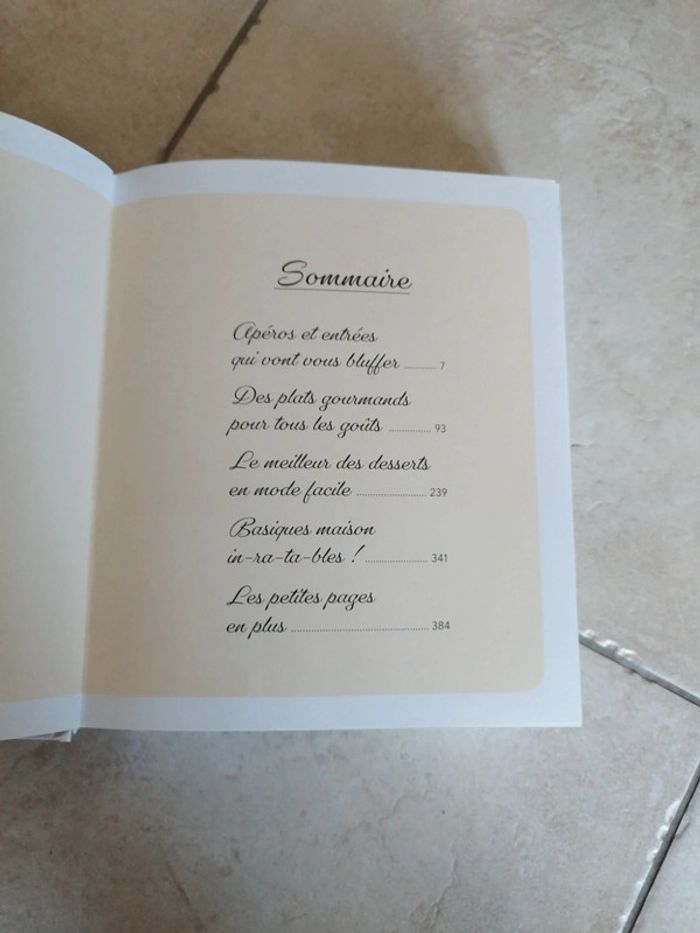 Sommaire
Apéros et entrées
qui vont vous bluffer ........... 7
Des plats gourmands
pour tous les goûts ............... 93
Le meilleur des desserts
en mode facile ......................... 239
Basiques maison
in-ra-ta-bles ! ...................... 341
Les petites pages
en plus ................................................. 384